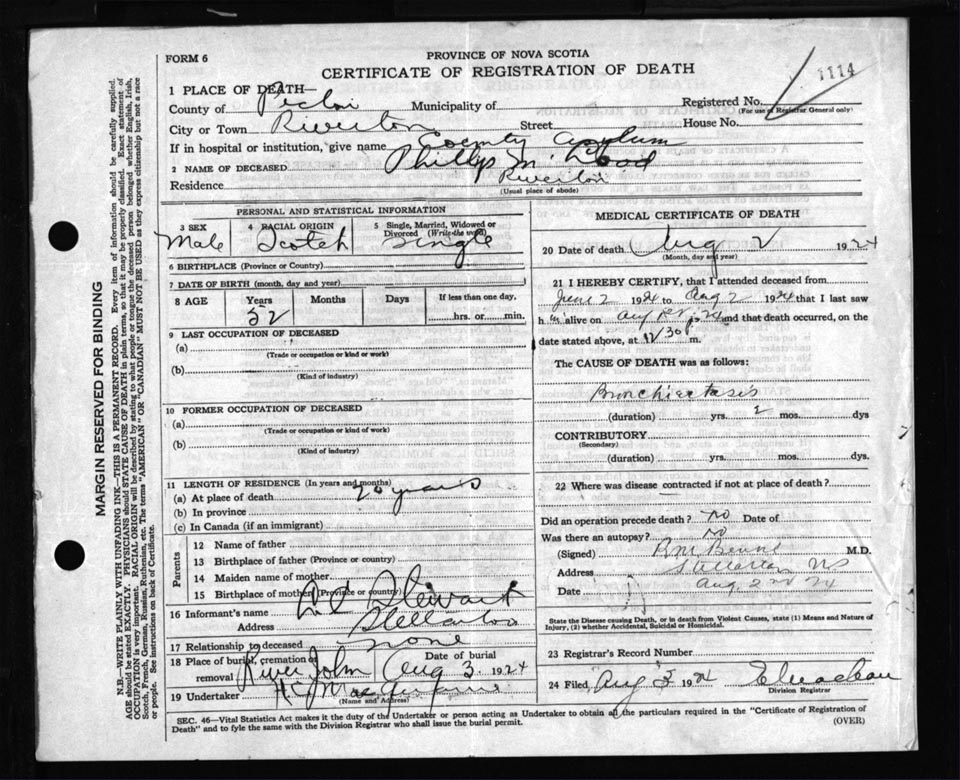 FORM 6
PROVINCE OF NOVA SCOTIA
CERTIFICATE OF REGISTRATION OF DEATH
1114
1 PLACE OF DEATH—
County of Pictou Municipality of Registered No.
(For use of Registrar General only)
City or Town Riverton Street House No.
If in hospital or institution, give name County Asylum
2 NAME OF DECEASED Phillip McLeod
Residence Riverton
(Usual place of abode)
PERSONAL AND STATISTICAL INFORMATION
3 SEX Male
4 RACIAL ORIGIN Scotch
5 Single, Married, Widowed or Divorced (Write the word) Single
6 BIRTHPLACE (Province or Country)
7 DATE OF BIRTH (month, day and year)
8 AGE Years Months Days If less than one day,
52 hrs. or min.
9 LAST OCCUPATION OF DECEASED
(a)
(Trade or occupation or kind or work)
(b)
(Kind of industry)
10 FORMER OCCUPATION OF DECEASED
(a)
(Trade or occupation or kind of work)
(b)
(Kind of industry)
11 LENGTH OF RESIDENCE (In years and months)
(a) At place of death 20 years
(b) In province
(c) In Canada (if an immigrant)
Parents
12 Name of father
13 Birthplace of father (Province or country)
14 Maiden name of mother
15 Birthplace of mother (Province or country)
16 Informant's name Stewart
Address Stellarton
17 Relationship to deceased none
18 Place of burial, cremation or removal River John
Date of burial Aug 3 1924
19 Undertaker
(Name and Address)
MEDICAL CERTIFICATE OF DEATH
20 Date of death Aug 2 1924
(Month, day and year)
21 I HEREBY CERTIFY, that I attended deceased from
June 2 1924 to Aug 2 1924 that I last saw
h im alive on Aug 24 and that death occurred, on the
date stated above, at m.
The CAUSE OF DEATH was as follows:
Bronchiectasis
(duration) yrs. 2 mos. dys
CONTRIBUTORY
(Secondary)
(duration) yrs. mos. dys.
22 Where was disease contracted if not at place of death?
Did an operation precede death? no Date of
Was there an autopsy? no
(Signed) M.D.
Address Stellarton NS
Date Aug 2nd 24
State the Disease causing Death, or in death from Violent Causes, state (1) Means and Nature of
Injury, (2) whether Accidental, Suicidal or Homicidal.
23 Registrar's Record Number
24 Filed Aug 3 1924
Division Registrar
SEC. 46—Vital Statistics Act makes it the duty of the Undertaker or person acting as Undertaker to obtain all the particulars required in the "Certificate of Registration of
Death" and to fyle the same with the Division Registrar who shall issue the burial permit.
(OVER)
MARGIN RESERVED FOR BINDING
N.B—WRITE PLAINLY WITH UNFADING INK—THIS IS A PERMANENT RECORD. Every item of information should be carefully supplied.
AGE should be stated EXACTLY. PHYSICIANS should STATE CAUSE OF DEATH in plain terms, so that it may be properly classified. Exact statement of
OCCUPATION is very important. RACIAL ORIGIN will be described by stating to what people or tongue the deceased person belonged whether English, Irish,
Scotch, French, German, Russian, Ruthenian, etc. The terms "AMERICAN" OR "CANADIAN" MUST NOT BE USED as they express citizenship but not a race
or people. See instructions on back of Certificate.